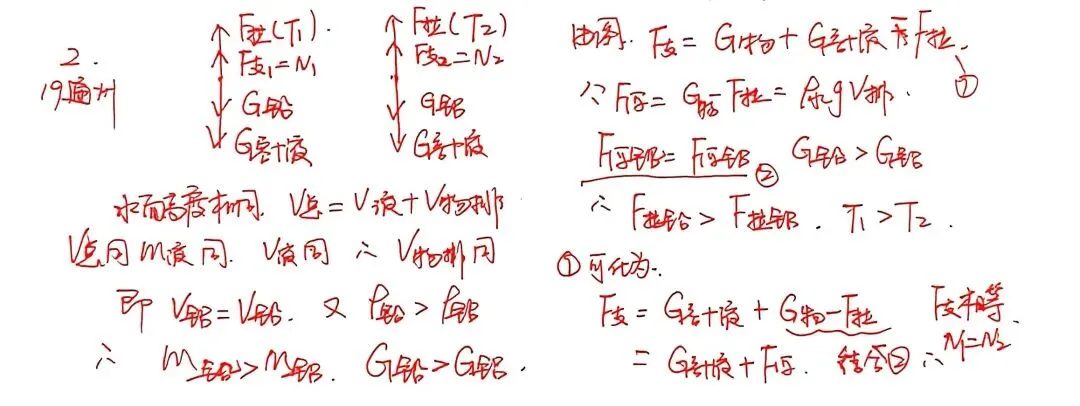 2.
19通州
F拉(T₁).
F支₁=N₁
G铅
G容+液
F拉(T₂)
F支₂=N₂
G铝
G容+液
水面高度相同. V总=V液+V物排
V总同 m液同. V液同 ∴ V物排同
即 V铝=V铅. 又 ρ铅>ρ铝
∴ m铅>m铝. G铅>G铝.
由图. F支=G物+G容+液-F拉. ①
∴ F浮=G物-F拉=ρ水gV排.
F浮铅=F浮铝 ② G铅>G铝
∴ F拉铅>F拉铝. T₁>T₂.
①可化为..
F支=G容+液+G物-F拉 F支相等.
=G容+液+F浮. 结合② ∴N₁=N₂